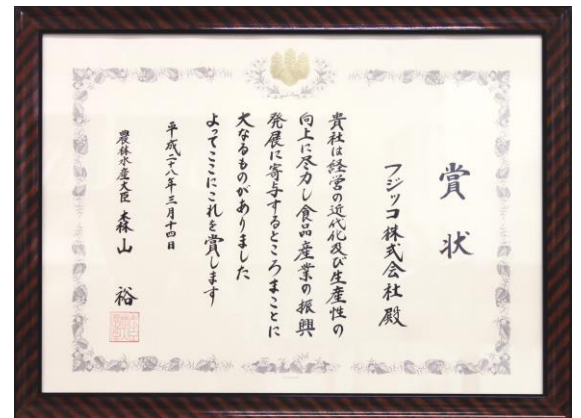 賞状
フジッコ株式会社殿
貴社は経営の近代化及び生産性の
向上に尽力し食品産業の振興
発展に寄与するところまことに
大なるものがありました
よってここにこれを賞します
平成二十八年三月十四日
農林水産大臣 森山 裕